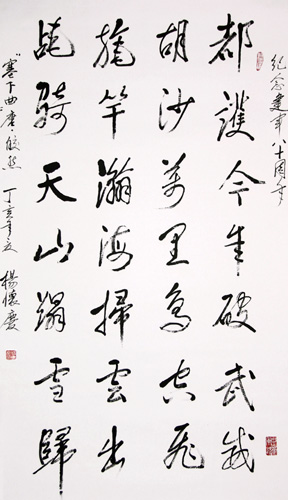 紀念建軍八十周年
都護今年破武威
胡沙萬里鳥空飛
旄竿瀚海掃雲出
氈騎天山蹋雪歸
“塞下曲”唐·皎然 丁亥年夏 楊懷慶